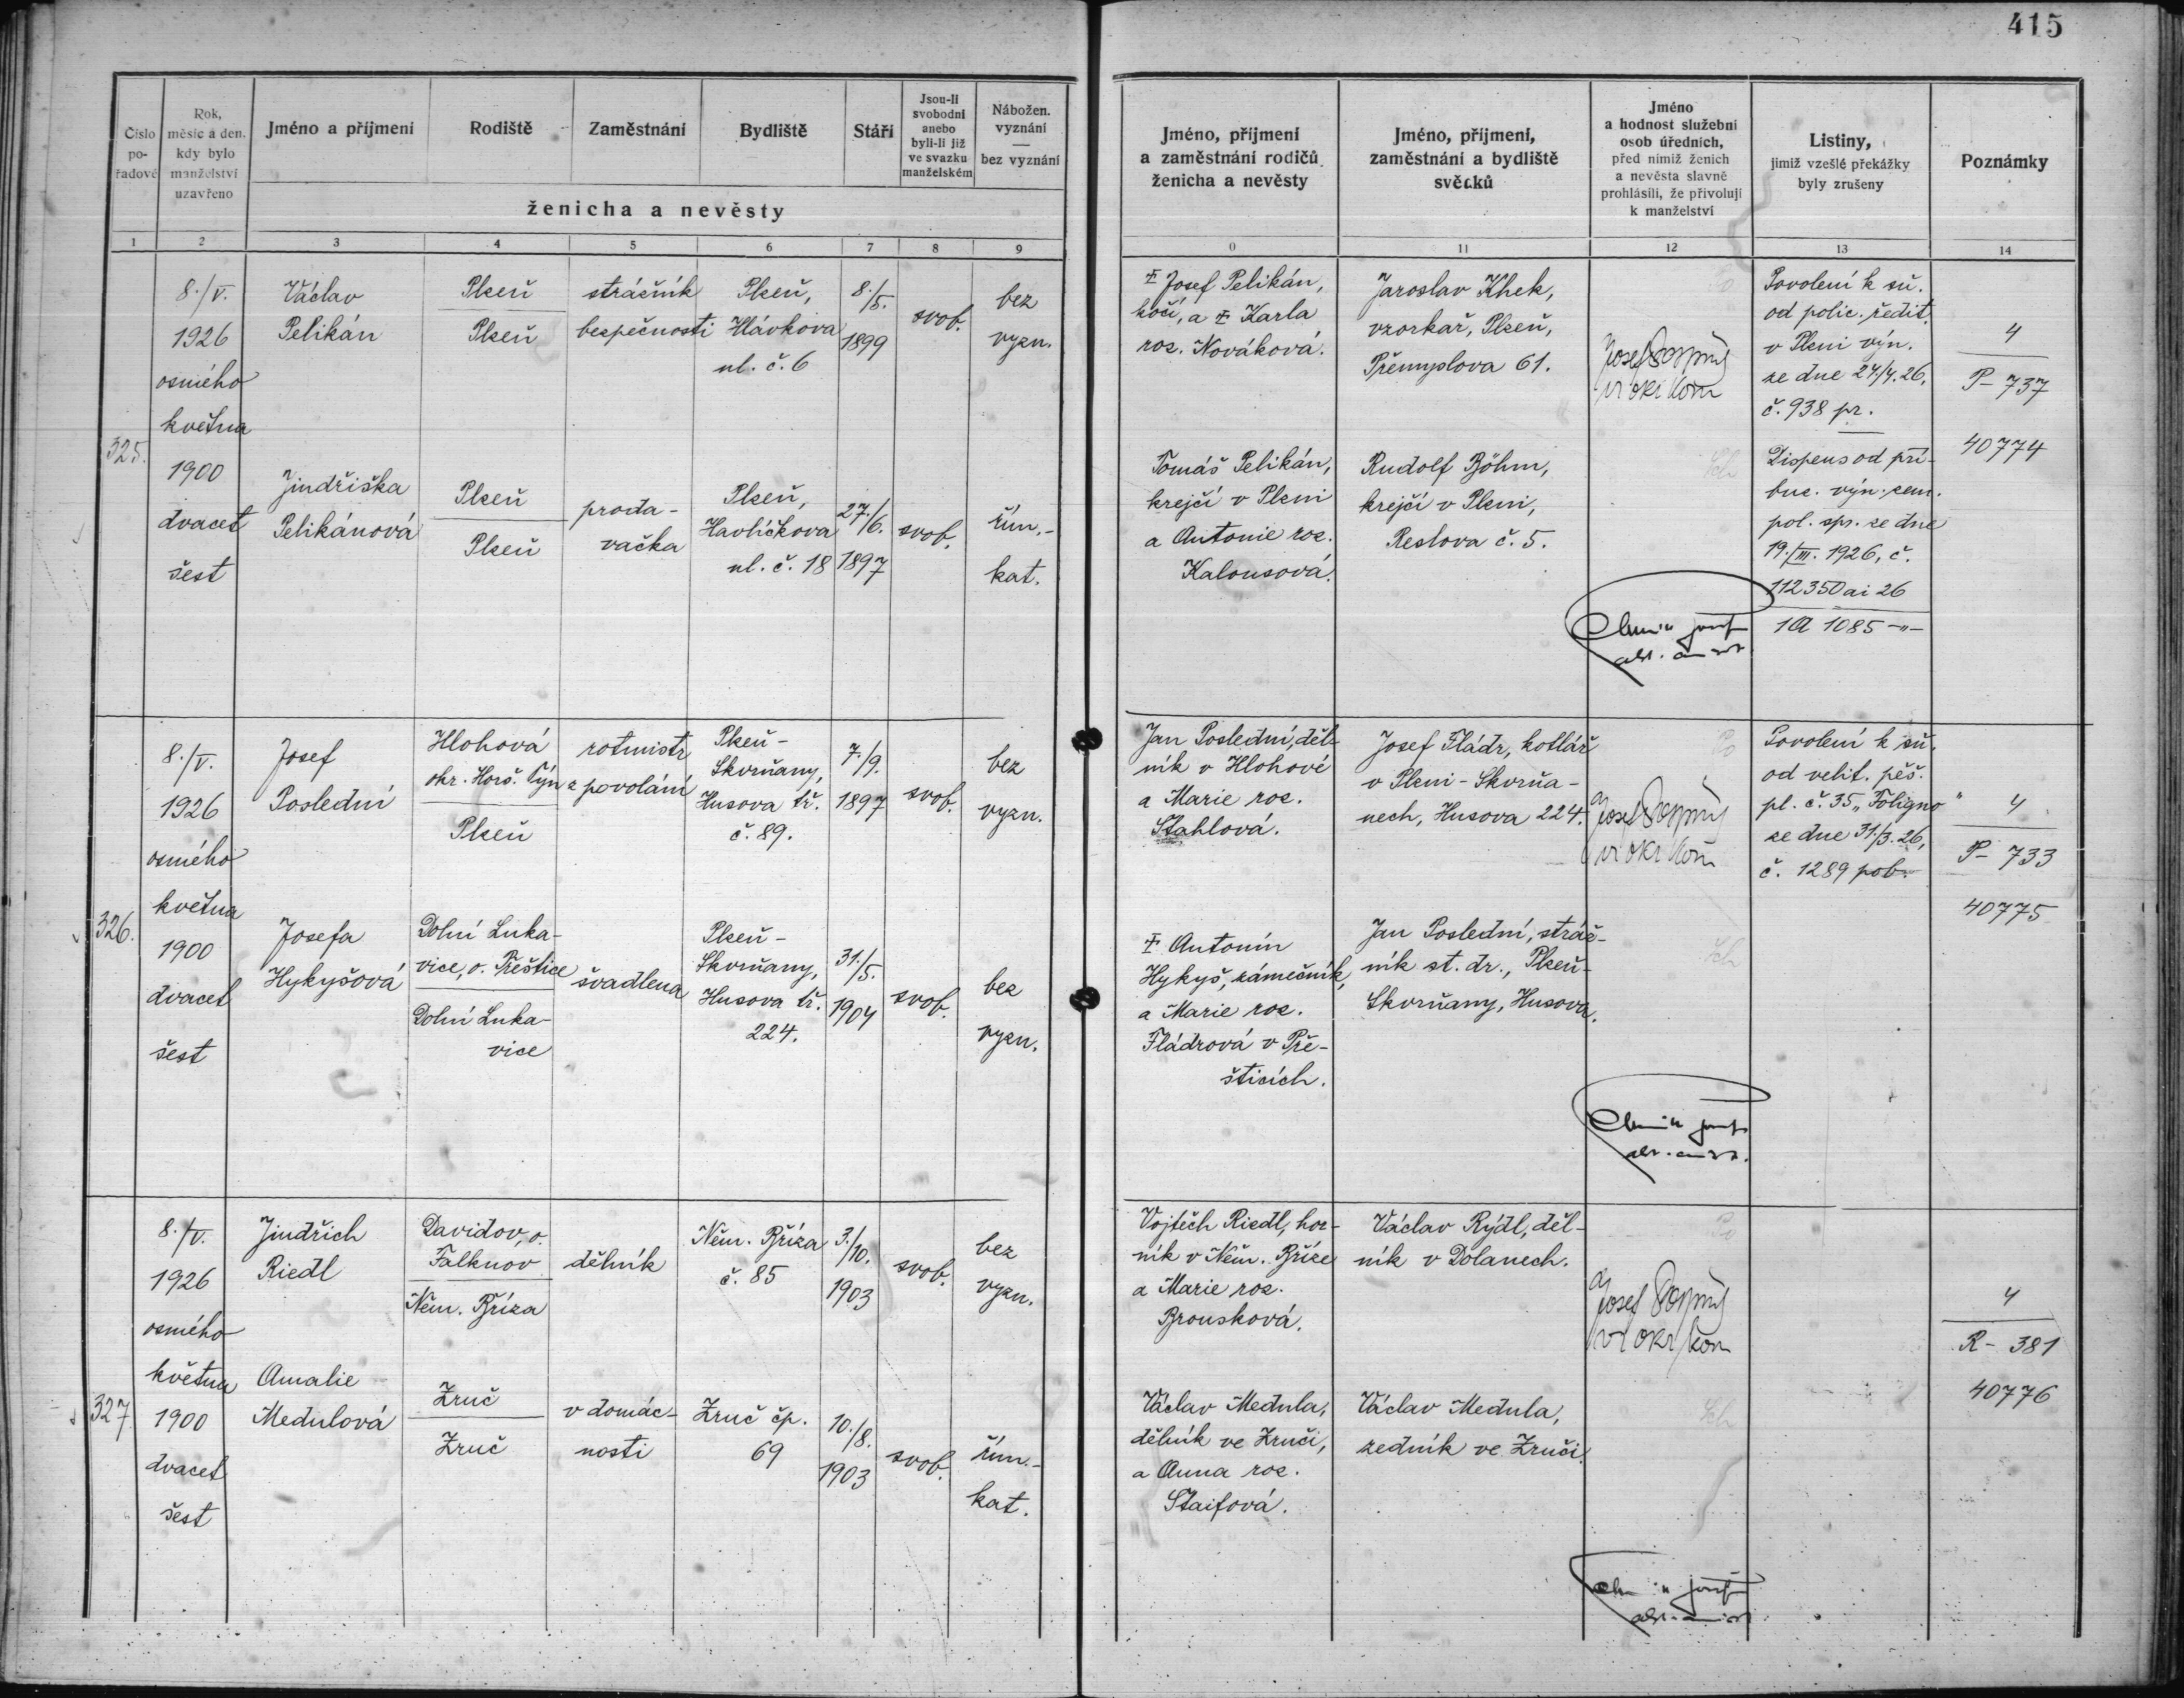 415
Číslo pořadové
Rok, měsíc a den, kdy bylo manželství uzavřeno
Jméno a příjmení
Rodiště
Zaměstnání
Bydliště
Stáří
Jsou-li svobodni anebo byli-li již ve svazku manželském
Nábožen. vyznání — bez vyznání
ženicha a nevěsty
Jméno, příjmení a zaměstnání rodičů ženicha a nevěsty
Jméno, příjmení, zaměstnání a bydliště svědků
Jméno a hodnost služební osob úředních, před nimiž ženich a nevěsta slavně prohlásili, že přivolují k manželství
Listiny, jimiž vzešlé překážky byly zrušeny
Poznámky
1 2 3 4 5 6 7 8 9 0 11 12 13 14
325.
8./V.
1926
osmého
května
1900
dvacet
šest
Václav
Pelikán
Plzeň
Plzeň
strážník
bezpečnosti
Plzeň,
Hlávkova
ul. č. 6
8./5.
1899
svob.
bez
vyzn.
Josef Pelikán,
kočí, a Karla
roz. Nováková.
Jaroslav Khek,
vzorkař, Plzeň,
Přemyslova 61.
Josef
Povolení k sň.
od polic. ředit.
v Plzni výn.
ze dne 24/4. 26,
č. 938 pr.
4
P- 737
40774
Jindřiška
Pelikánová
Plzeň
Plzeň
proda-
vačka
Plzeň,
Havlíčkova
ul. č. 18
27./6.
1897
svob.
řím.-
kat.
Tomáš Pelikán,
krejčí v Plzni
a Antonie roz.
Kalousová.
Rudolf Böhm,
krejčí v Plzni,
Reslova č. 5.
Dispens od pří-
buz. výn. zem.
pol. spr. ze dne
19./III. 1926, č.
112350 ai 26
1A 1085 -"-
326.
8./V.
1926
osmého
května
1900
dvacet
šest
Josef
Poslední
Hlohová
okr. Horš. Týn
Plzeň
rotmistr
z povolání
Plzeň-
Skvrňany,
Husova tř.
č. 89.
7./9.
1897
svob.
bez
vyzn.
Jan Poslední, děl-
ník v Hlohové
a Marie roz.
Stahlová.
Josef Fládr, kotlář
v Plzni - Skvrňa-
nech, Husova 224.
Josef
Povolení k sň.
od velit. pěš.
pl. č. 35 „Foligno"
ze dne 31./3. 26,
č. 1289 pob.
4
P- 733
40775
Josefa
Hykyšová
Dolní Luka-
vice, o. Přeštice
Dolní Luka-
vice
švadlena
Plzeň-
Skvrňany,
Husova tř.
224.
31./5.
1904
svob.
bez
vyzn.
Antonín
Hykyš, zámečník,
a Marie roz.
Fládrová v Pře-
šticích.
Jan Poslední, stráž-
ník st. dr., Plzeň-
Skvrňany, Husova.
327
8./V.
1926
osmého
května
1900
dvacet
šest
Jindřich
Riedl
Davidov, o.
Falknov
Něm. Bříza
dělník
Něm. Bříza
č. 85
3./10.
1903
svob.
bez
vyzn.
Vojtěch Riedl, hor-
ník v Něm. Bříze
a Marie roz.
Brousková.
Václav Rýdl, děl-
ník v Dolanech.
Josef
4
R- 381
40776
Amalie
Medulová
Zruč
Zruč
v domác-
nosti
Zruč čp.
69
10./8.
1903
svob.
řím.-
kat.
Václav Medula,
dělník ve Zruči,
a Anna roz.
Staifová.
Václav Medula,
zedník ve Zruči.